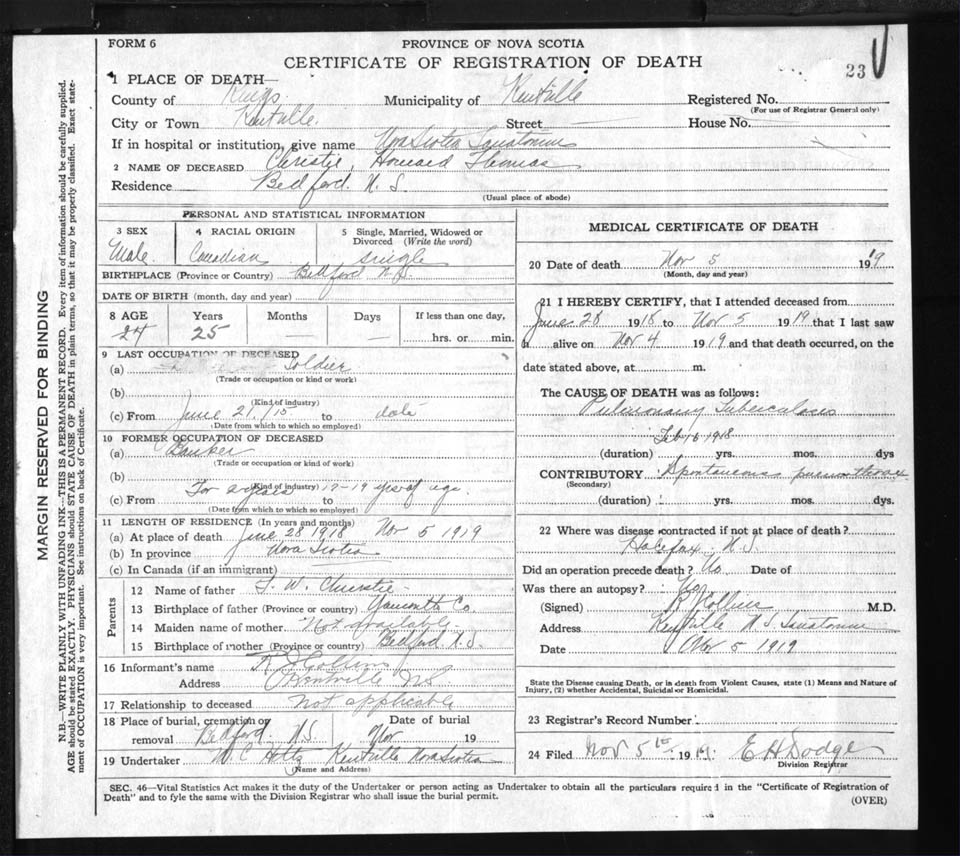 FORM 6
PROVINCE OF NOVA SCOTIA
CERTIFICATE OF REGISTRATION OF DEATH
23
1 PLACE OF DEATH—
County of Kings Municipality of Kentville Registered No.
(For use of Registrar General only)
City or Town Kentville. Street House No.
If in hospital or institution, give name Nova Scotia Sanatorium
2 NAME OF DECEASED Christie, Howard Thomas
Residence Bedford. N. S.
(Usual place of abode)
MARGIN RESERVED FOR BINDING
N.B.—WRITE PLAINLY WITH UNFADING INK—THIS IS A PERMANENT RECORD. Every item of information should be carefully supplied.
AGE should be stated EXACTLY. PHYSICIANS should STATE CAUSE OF DEATH in plain terms, so that it may be properly classified. Exact state-
ment of OCCUPATION is very important. See instructions on back of Certificate.
PERSONAL AND STATISTICAL INFORMATION
3 SEX 4 RACIAL ORIGIN 5 Single, Married, Widowed or
Divorced (Write the word)
Male. Canadian single
BIRTHPLACE (Province or Country) Bedford N.S.
DATE OF BIRTH (month, day and year)
8 AGE Years Months Days If less than one day,
24 25 hrs. or min.
9 LAST OCCUPATION OF DECEASED
(a) Soldier
(Trade or occupation or kind or work)
(b)
(Kind of industry)
(c) From June 21, /15 to date
(Date from which to which so employed)
10 FORMER OCCUPATION OF DECEASED
(a) Banker
(Trade or occupation or kind of work)
(b)
(Kind of industry)
For 17-19 yrs of age.
(c) From to
(Date from which to which so employed)
11 LENGTH OF RESIDENCE (In years and months)
(a) At place of death June 28 1918 Nov 5 1919
(b) In province Nova Scotia
(c) In Canada (if an immigrant)
Parents
12 Name of father W. Christie
13 Birthplace of father (Province or country) Yarmouth Co.
14 Maiden name of mother Not available.
15 Birthplace of mother (Province or country) Bedford N.S.
16 Informant's name Collins
Address Kentville N.S.
17 Relationship to deceased not applicable
18 Place of burial, cremation or Date of burial
removal Bedford. N.S. Nov 19
19 Undertaker W C Kentville Nova Scotia
(Name and Address)
MEDICAL CERTIFICATE OF DEATH
20 Date of death Nov 5 1919
(Month, day and year)
21 I HEREBY CERTIFY, that I attended deceased from
June 28 1918 to Nov 5 1919 that I last saw
h alive on Nov 4 1919 and that death occurred, on the
date stated above, at m.
The CAUSE OF DEATH was as follows:
Pulmonary Tuberculosis
1918
(duration) yrs. mos. dys
CONTRIBUTORY Spontaneous pneumothorax
(Secondary)
(duration) yrs. mos. dys.
22 Where was disease contracted if not at place of death?
Halifax. N.S.
Did an operation precede death? No Date of
Was there an autopsy? Yes
(Signed) Collins M.D.
Address Kentville N.S. Sanatorium
Date Nov 5 1919
State the Disease causing Death, or in death from Violent Causes, state (1) Means and Nature of
Injury, (2) whether Accidental, Suicidal or Homicidal.
23 Registrar's Record Number
24 Filed Nov 5th 1919. E H Dodge
Division Registrar
SEC. 46—Vital Statistics Act makes it the duty of the Undertaker or person acting as Undertaker to obtain all the particulars required in the "Certificate of Registration of
Death" and to fyle the same with the Division Registrar who shall issue the burial permit.
(OVER)